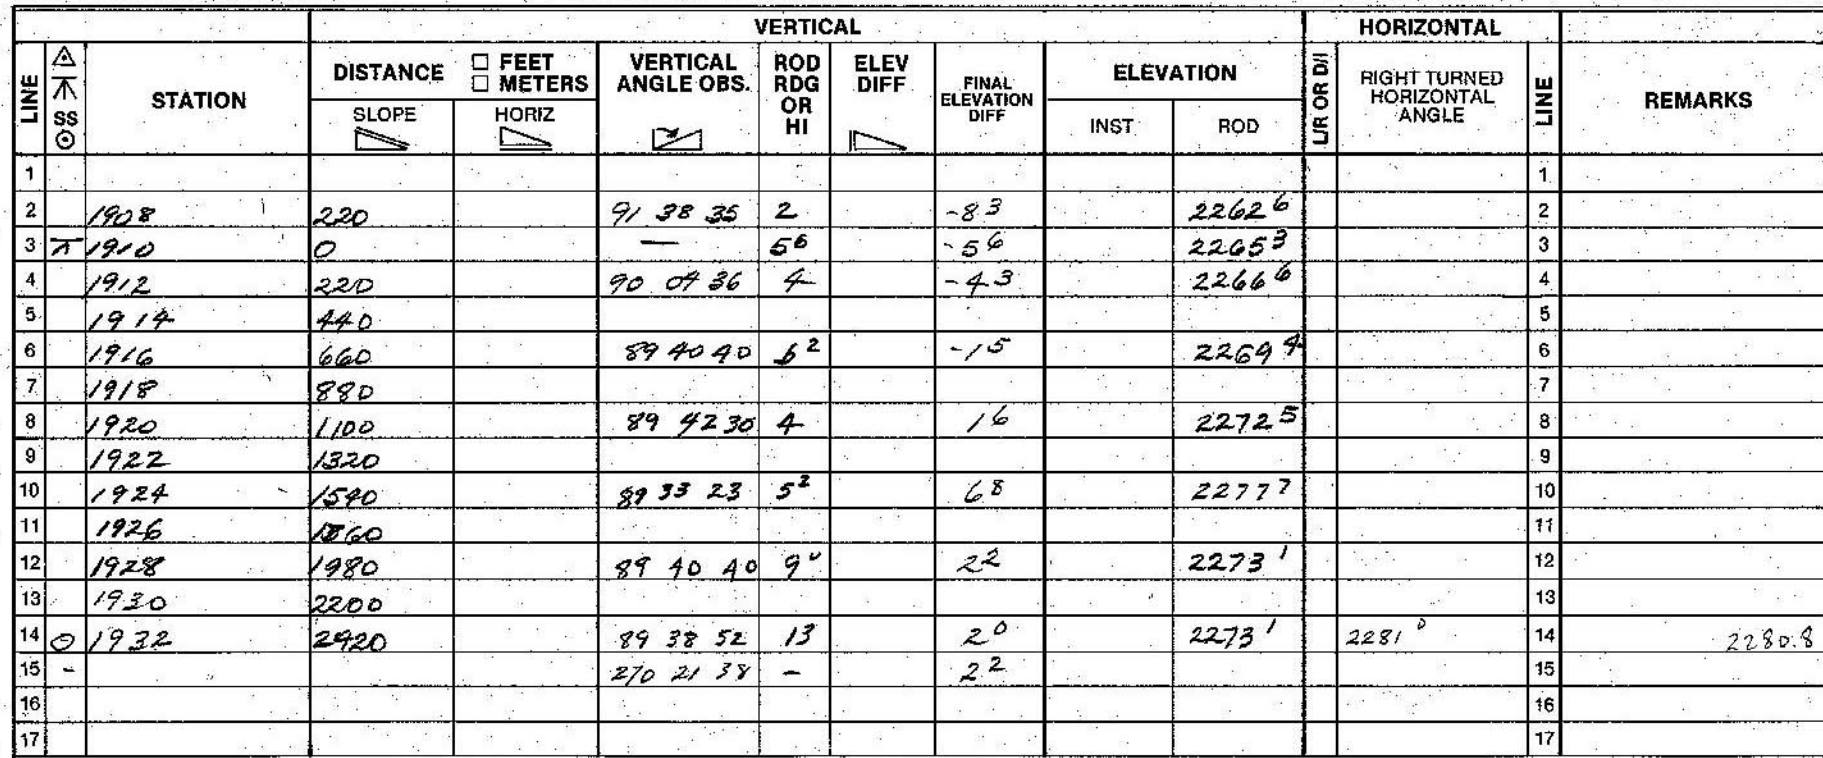 VERTICAL HORIZONTAL
LINE SS STATION DISTANCE □ FEET □ METERS VERTICAL ANGLE OBS. ROD RDG OR HI ELEV DIFF FINAL ELEVATION DIFF ELEVATION L/R OR D/I RIGHT TURNED HORIZONTAL ANGLE LINE REMARKS
SLOPE HORIZ INST ROD
1 1
2 1908 220 91 38 35 2 -8 3 2262 6 2
3 1910 0 — 5 6 -5 6 2265 3 3
4 1912 220 90 04 36 4 -4 3 2266 6 4
5 1914 440 5
6 1916 660 89 40 40 6 2 -1 5 2269 4 6
7 1918 880 7
8 1920 1100 89 42 30 4 1 6 2272 5 8
9 1922 1320 9
10 1924 1540 89 33 23 5 2 6 8 2277 7 10
11 1926 1760 11
12 1928 1980 89 40 40 9 0 2 2 2273 1 12
13 1930 2200 13
14 1932 2420 89 38 52 13 2 0 2273 1 2281 0 14 2280.8
15 - 270 21 38 - 2 2 15
16 16
17 17